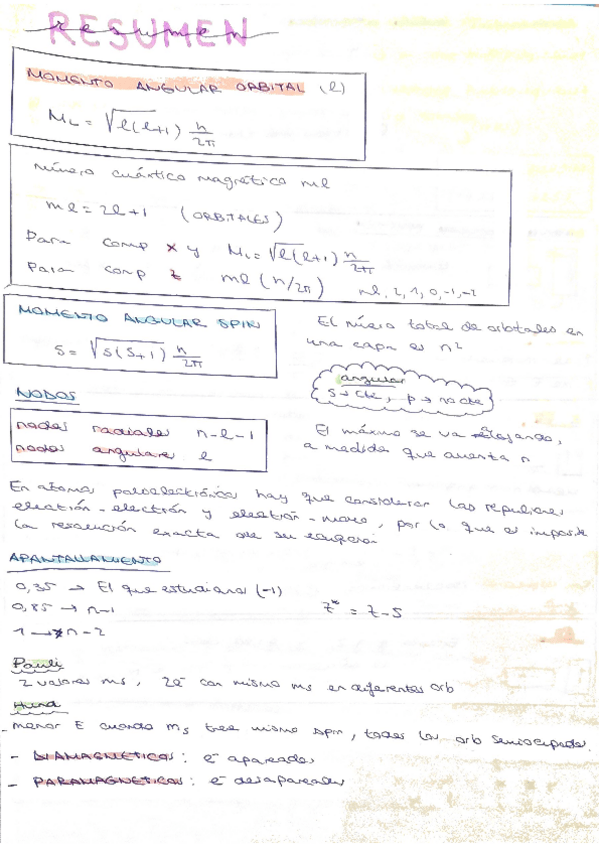 RESUMEN
resumen
MOMENTO ANGULAR ORBITAL (l)
ML = √l(l+1) h/2π
número cuántico magnético ml
ml = 2l+1 (ORBITALES)
Para comp x y ML = √l(l+1) h/2π
Para comp z ml (h/2π) ml, 2, 1, 0, -1, -2
MOMENTO ANGULAR SPIN
S = √s(s+1) h/2π
El número total de orbitales en
una capa es n²
angular
s → cte, p → no cte
NODOS
nodos radiales n-l-1
nodos angulares l
El máximo se va alejando,
a medida que aumenta n
En átomos polielectrónicos hay que considerar las repulsiones
electrón-electrón y electrón-núcleo, por lo que es imposible
la resolución exacta de su
APANTALLAMIENTO
0,35 → El que estudiamos (-1)
0,85 → n-1
1 → n-2
z* = z-S
Pauli
2 valores ms, 2e⁻ con mismo ms en diferentes orb
Hund
- menor E cuando ms tiene mismo spin, todos los orb semiocupados.
- DIAMAGNÉTICOS: e⁻ apareados
- PARAMAGNÉTICOS: e⁻ desapareados